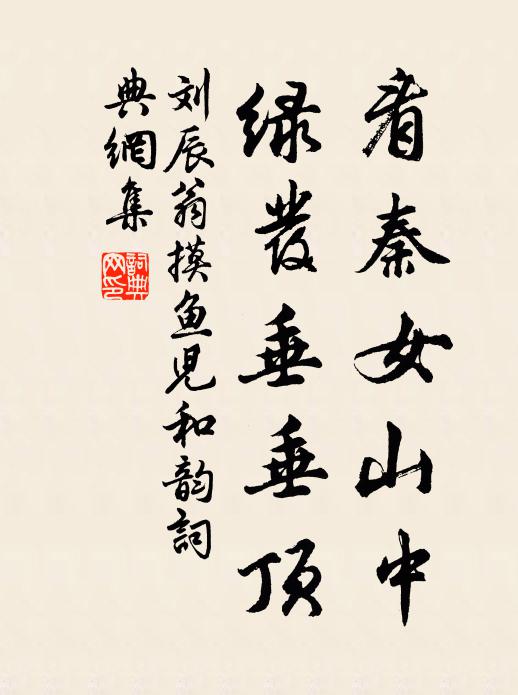 看秦女山中
绿发垂垂顶
刘辰翁摸鱼儿和韵詞
典網集
詞典网印